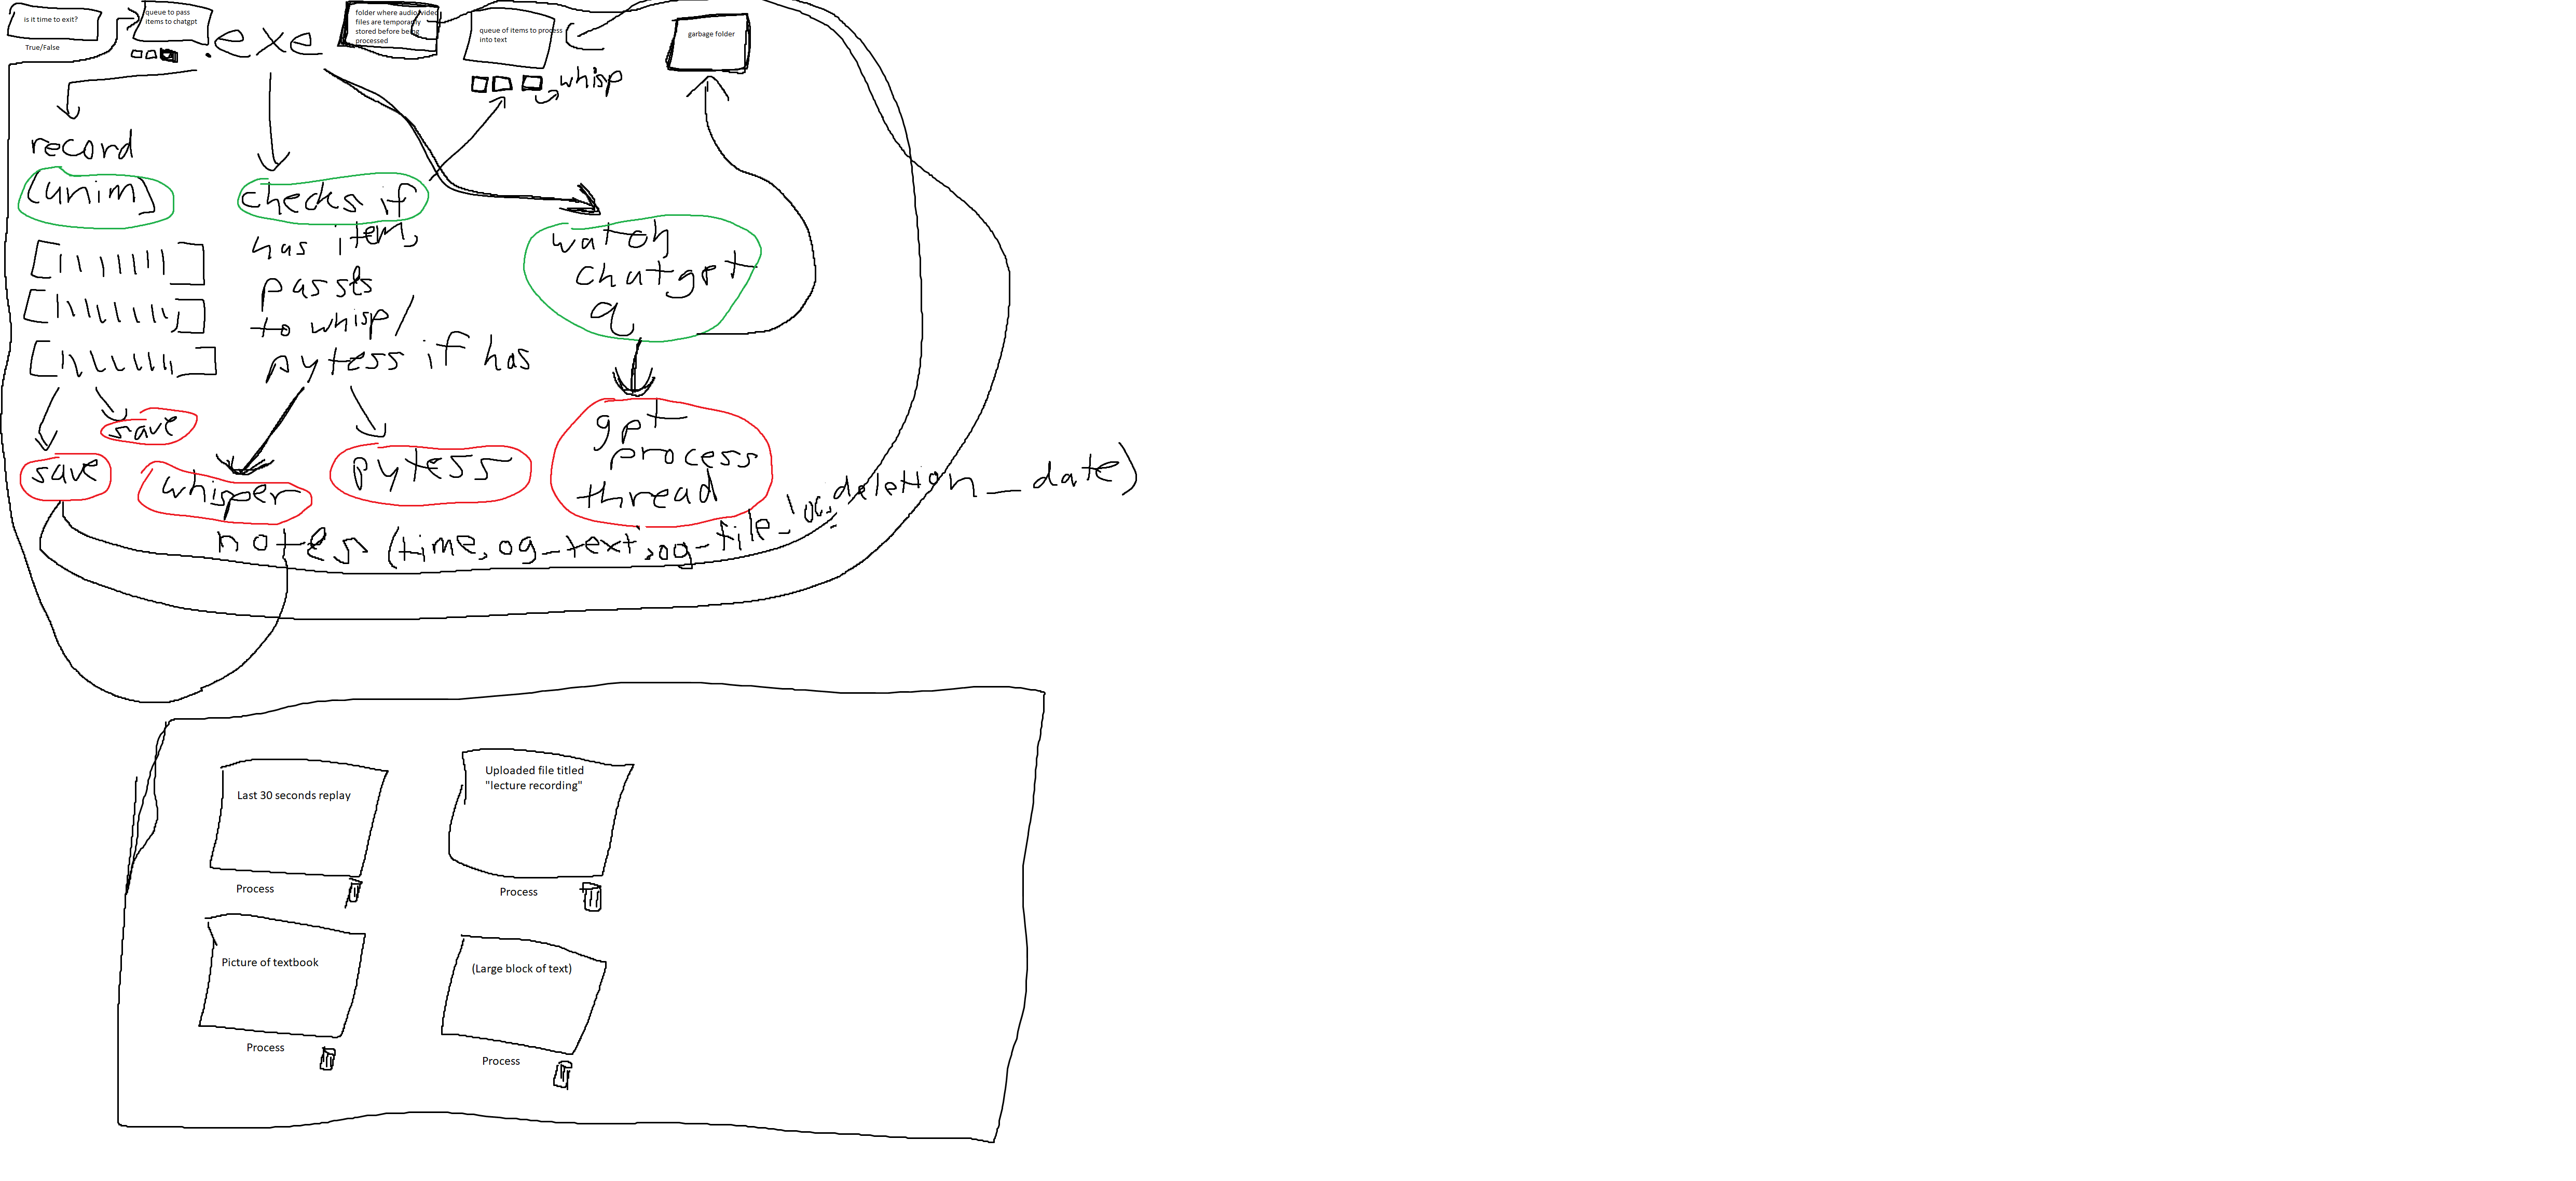 is it time to exit?
True/False
queue to pass
items to chatgpt
.exe
folder where audio/video
files are temporarily
stored before being
processed
queue of items to process
into text
whisp
garbage folder
record
(unim)
save
save
checks if
has item,
passes
to whisp/
pytess if has
whisper
pytess
watch
chatgpt
q
gpt
process
thread
notes (time, og_text, og_file_loc, deletion_date)
Last 30 seconds replay
Process
Uploaded file titled
"lecture recording"
Process
Picture of textbook
Process
(Large block of text)
Process